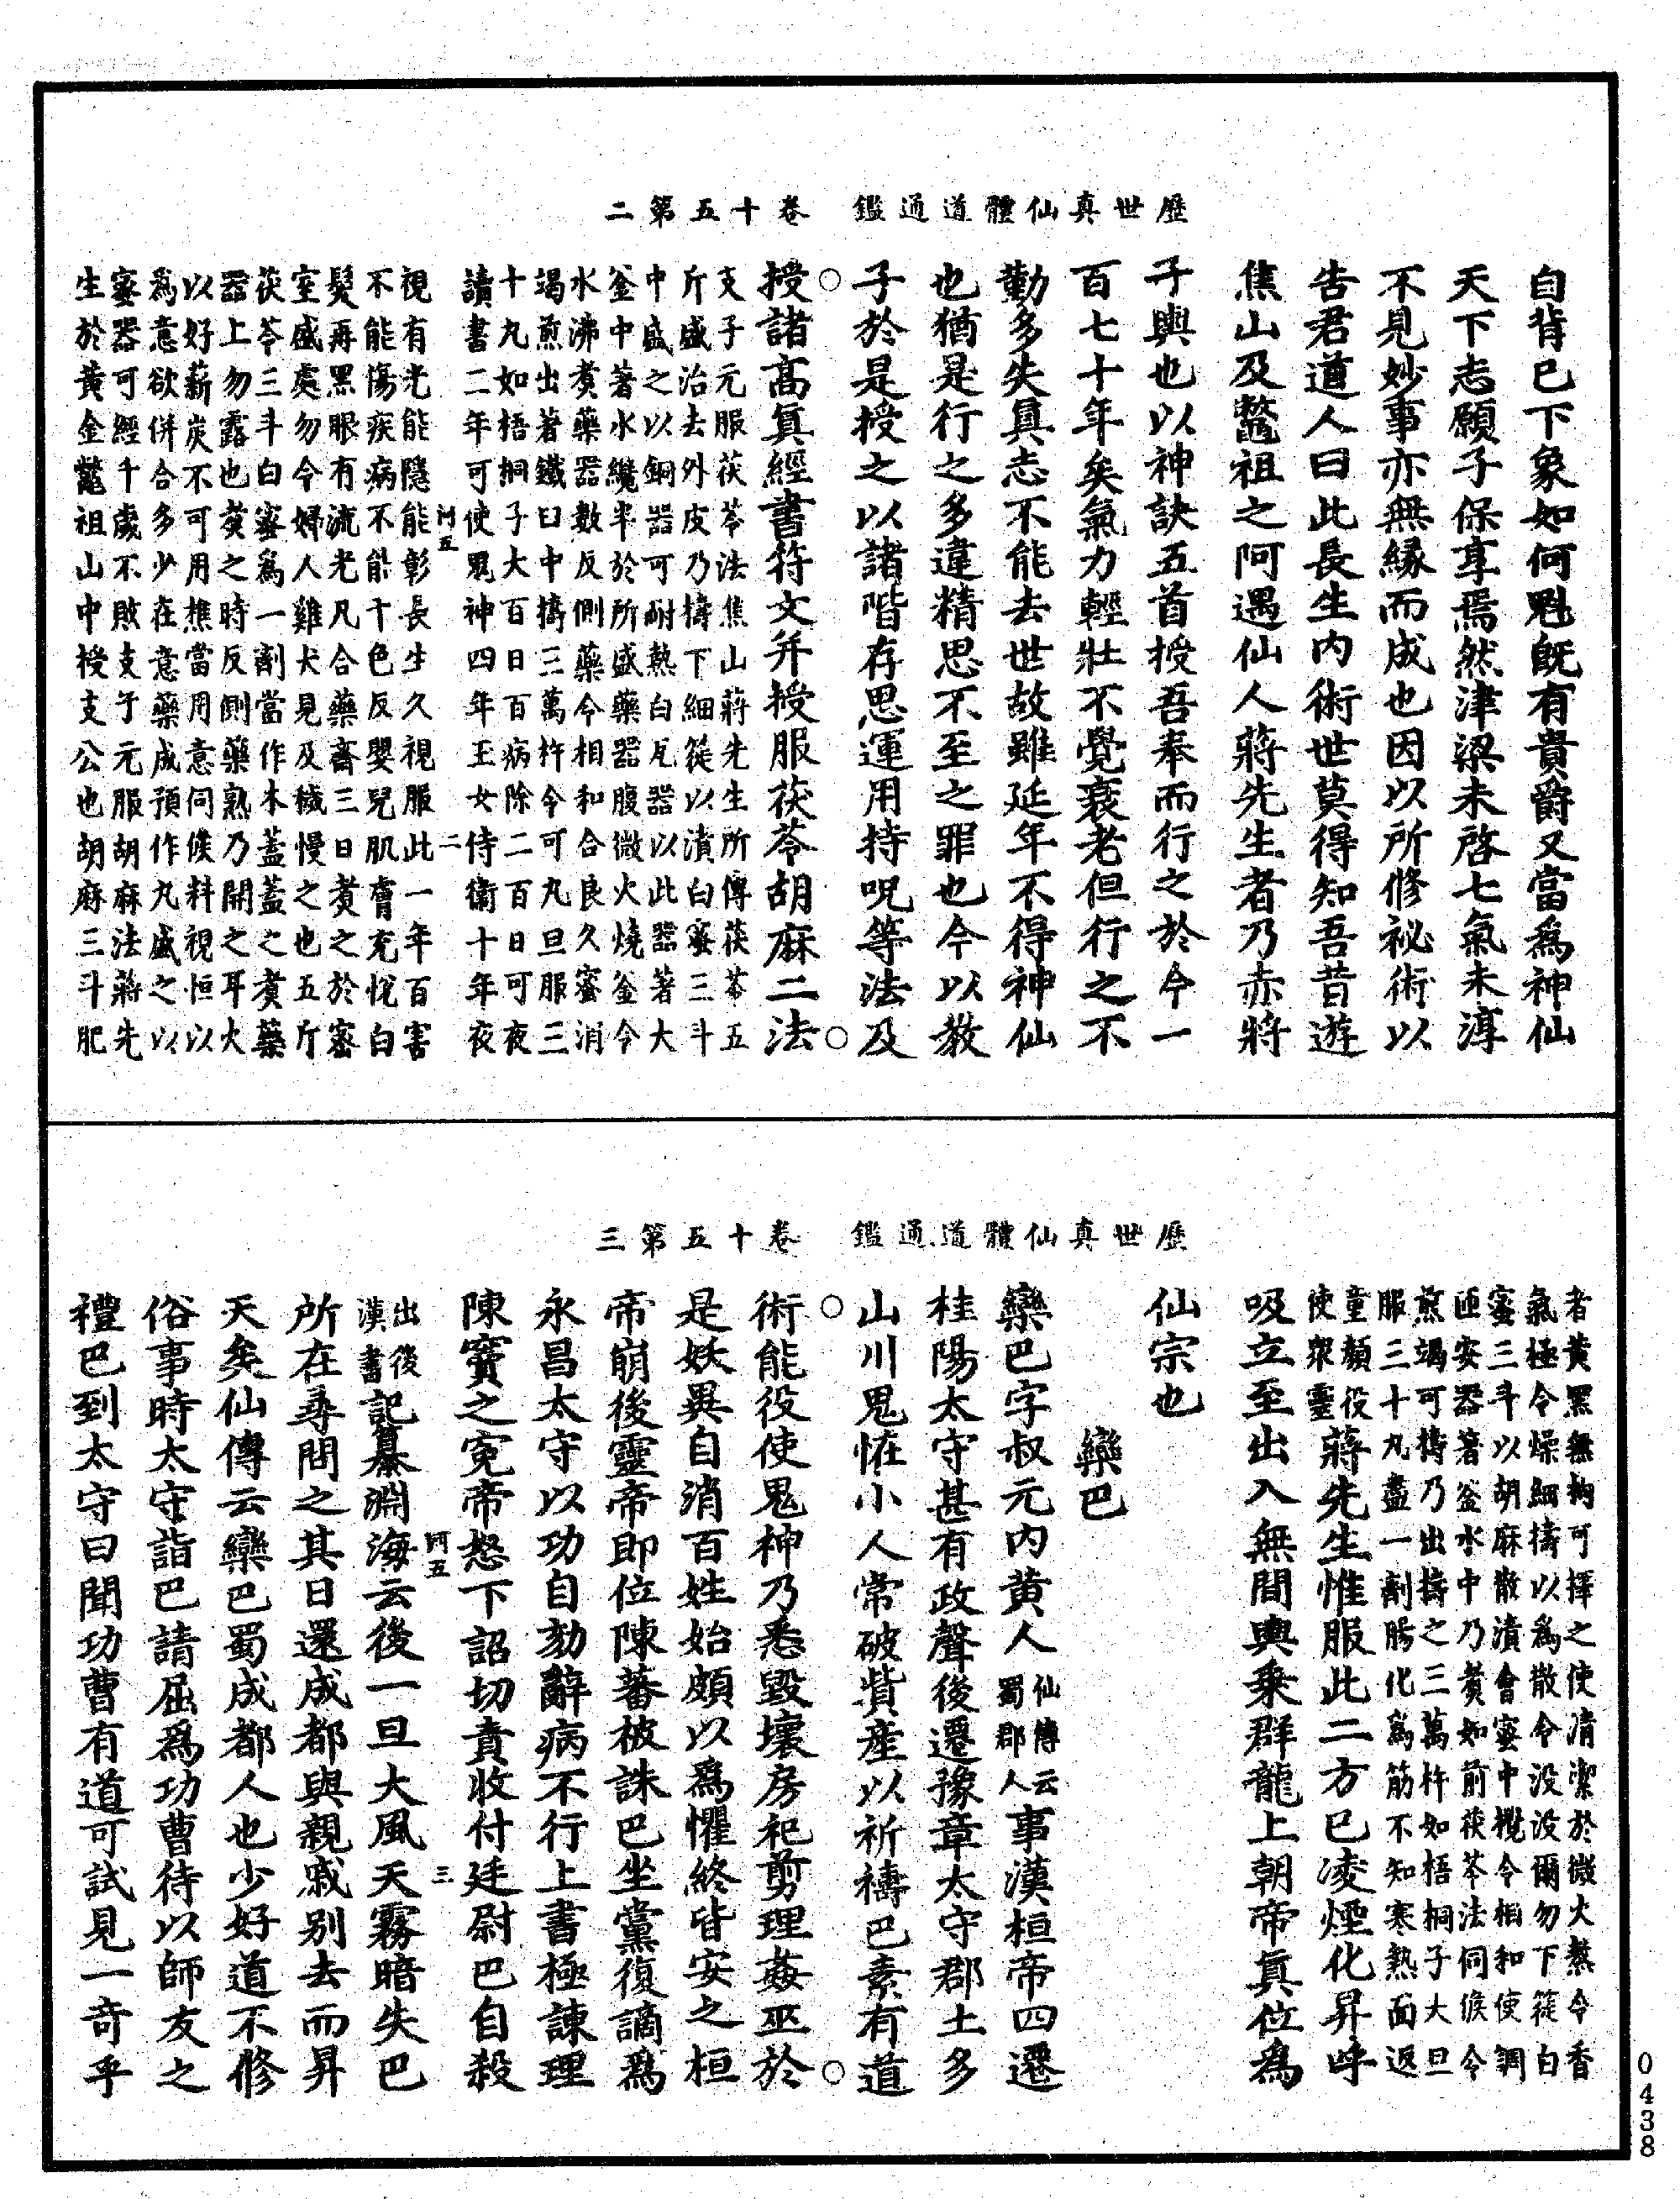 歷世真仙體道通鑑　卷十五第二
自背已下象如何魁旣有貴爵又當為神仙
天下志願子保享焉然津梁未啓七氣未淳
不見妙事亦無緣而成也因以所修祕術以
告君道人曰此長生內術世莫得知吾昔遊
焦山及鼈祖之阿遇仙人蔣先生者乃赤將
子輿也以神訣五首授吾奉而行之於今一
百七十年矣氣力輕壯不覺衰老但行之不
勤多失真志不能去世故雖延年不得神仙
也猶是行之多違精思不至之罪也今以教
子於是授之以諸階存思運用持呪等法及
○授諸髙真經書符文并授服茯苓胡麻二法○
支子元服茯苓法焦山蔣先生所傳茯苓五
斤盛治去外皮乃擣下細簁以漬白蜜三斗
中盛之以銅器可耐熱白瓦器以此器著大
釜中著水纔半於所盛藥器腹微火燒釜令
水沸煑藥器數反側藥令相和合良久蜜消
竭煎出著鐵臼中擣三萬杵令可丸旦服三
十丸如梧桐子大百日百病除二百日可夜
讀書二年可使鬼神四年玉女侍衛十年夜
河五　二
視有光能隱能彰長生久視服此一年百害
不能傷疾病不能干色反嬰兒肌膚充悅白
髮再黑眼有流光凡合藥齋三日煑之於密
室盛處勿令婦人雞犬見及穢慢之也五斤
茯苓三斗白蜜為一劑當作木蓋蓋之煑藥
器上勿露也煑之時反側藥熟乃開之耳火
以好薪炭不可用樵當用意伺候料視恒以
為意欲併合多少在意藥成預作丸盛之以
蜜器可經千歲不敗支子元服胡麻法蔣先
生於黃金鼈祖山中授支公也胡麻三斗肥
歷世真仙體道通鑑　卷十五第三
者黃黑無拘可擇之使清潔於微火熬令香
氣極令燥細擣以為散令没没爾勿下簁白
蜜三斗以胡麻散漬會蜜中攪令相和使調
匝安器著釜水中乃煑如前茯苓法伺候令
煎竭可擣乃出擣之三萬杵如梧桐子大旦
服三十丸盡一劑腸化為筋不知寒熱面返
童顏役使衆靈蔣先生惟服此二方已凌煙化昇呼
吸立至出入無間輿乗群龍上朝帝真位為
仙宗也
欒巴
欒巴字叔元內黃人仙傳云蜀郡人事漢桓帝四遷
桂陽太守甚有政聲後遷豫章太守郡土多
山川鬼恠小人常破貲產以祈禱巴素有道
○術能役使鬼神乃悉毀壞房祀剪理姦巫於○
是妖異自消百姓始頗以為懼終皆安之桓
帝崩後靈帝即位陳蕃被誅巴坐黨復謫為
永昌太守以功自劾辭病不行上書極諫理
陳竇之寃帝怒下詔切責收付廷尉巴自殺
河五　三
出後漢書記纂淵海云後一旦大風天霧暗失巴
所在尋問之其日還成都與親戚别去而昇
天矣仙傳云欒巴蜀成都人也少好道不修
俗事時太守詣巴請屈為功曹待以師友之
禮巴到太守曰聞功曹有道可試見一奇乎
0438